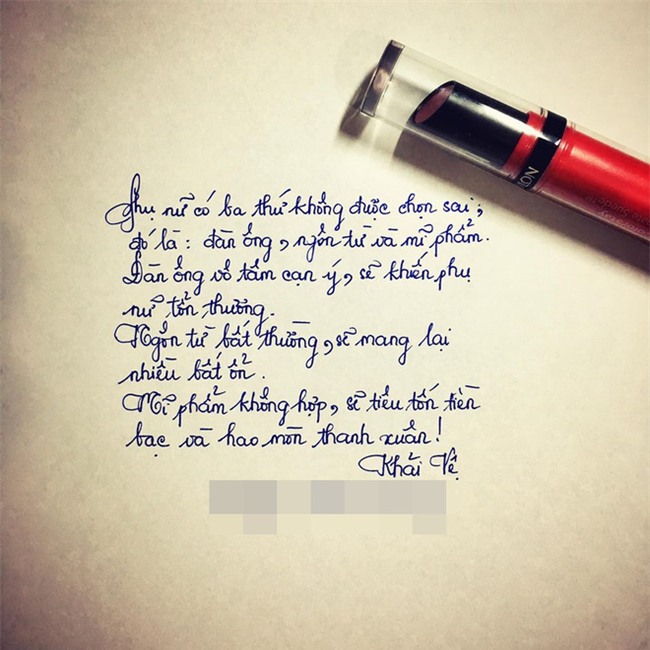 Phụ nữ có ba thứ không được chọn sai,
đó là: đàn ông, ngôn từ và mĩ phẩm.
Đàn ông vô tâm cạn ý, sẽ khiến phụ
nữ tổn thương.
Ngôn từ bất thường, sẽ mang lại
nhiều bất ổn.
Mĩ phẩm không hợp, sẽ tiêu tốn tiền
bạc và hao mòn thanh xuân!
Khải Vệ